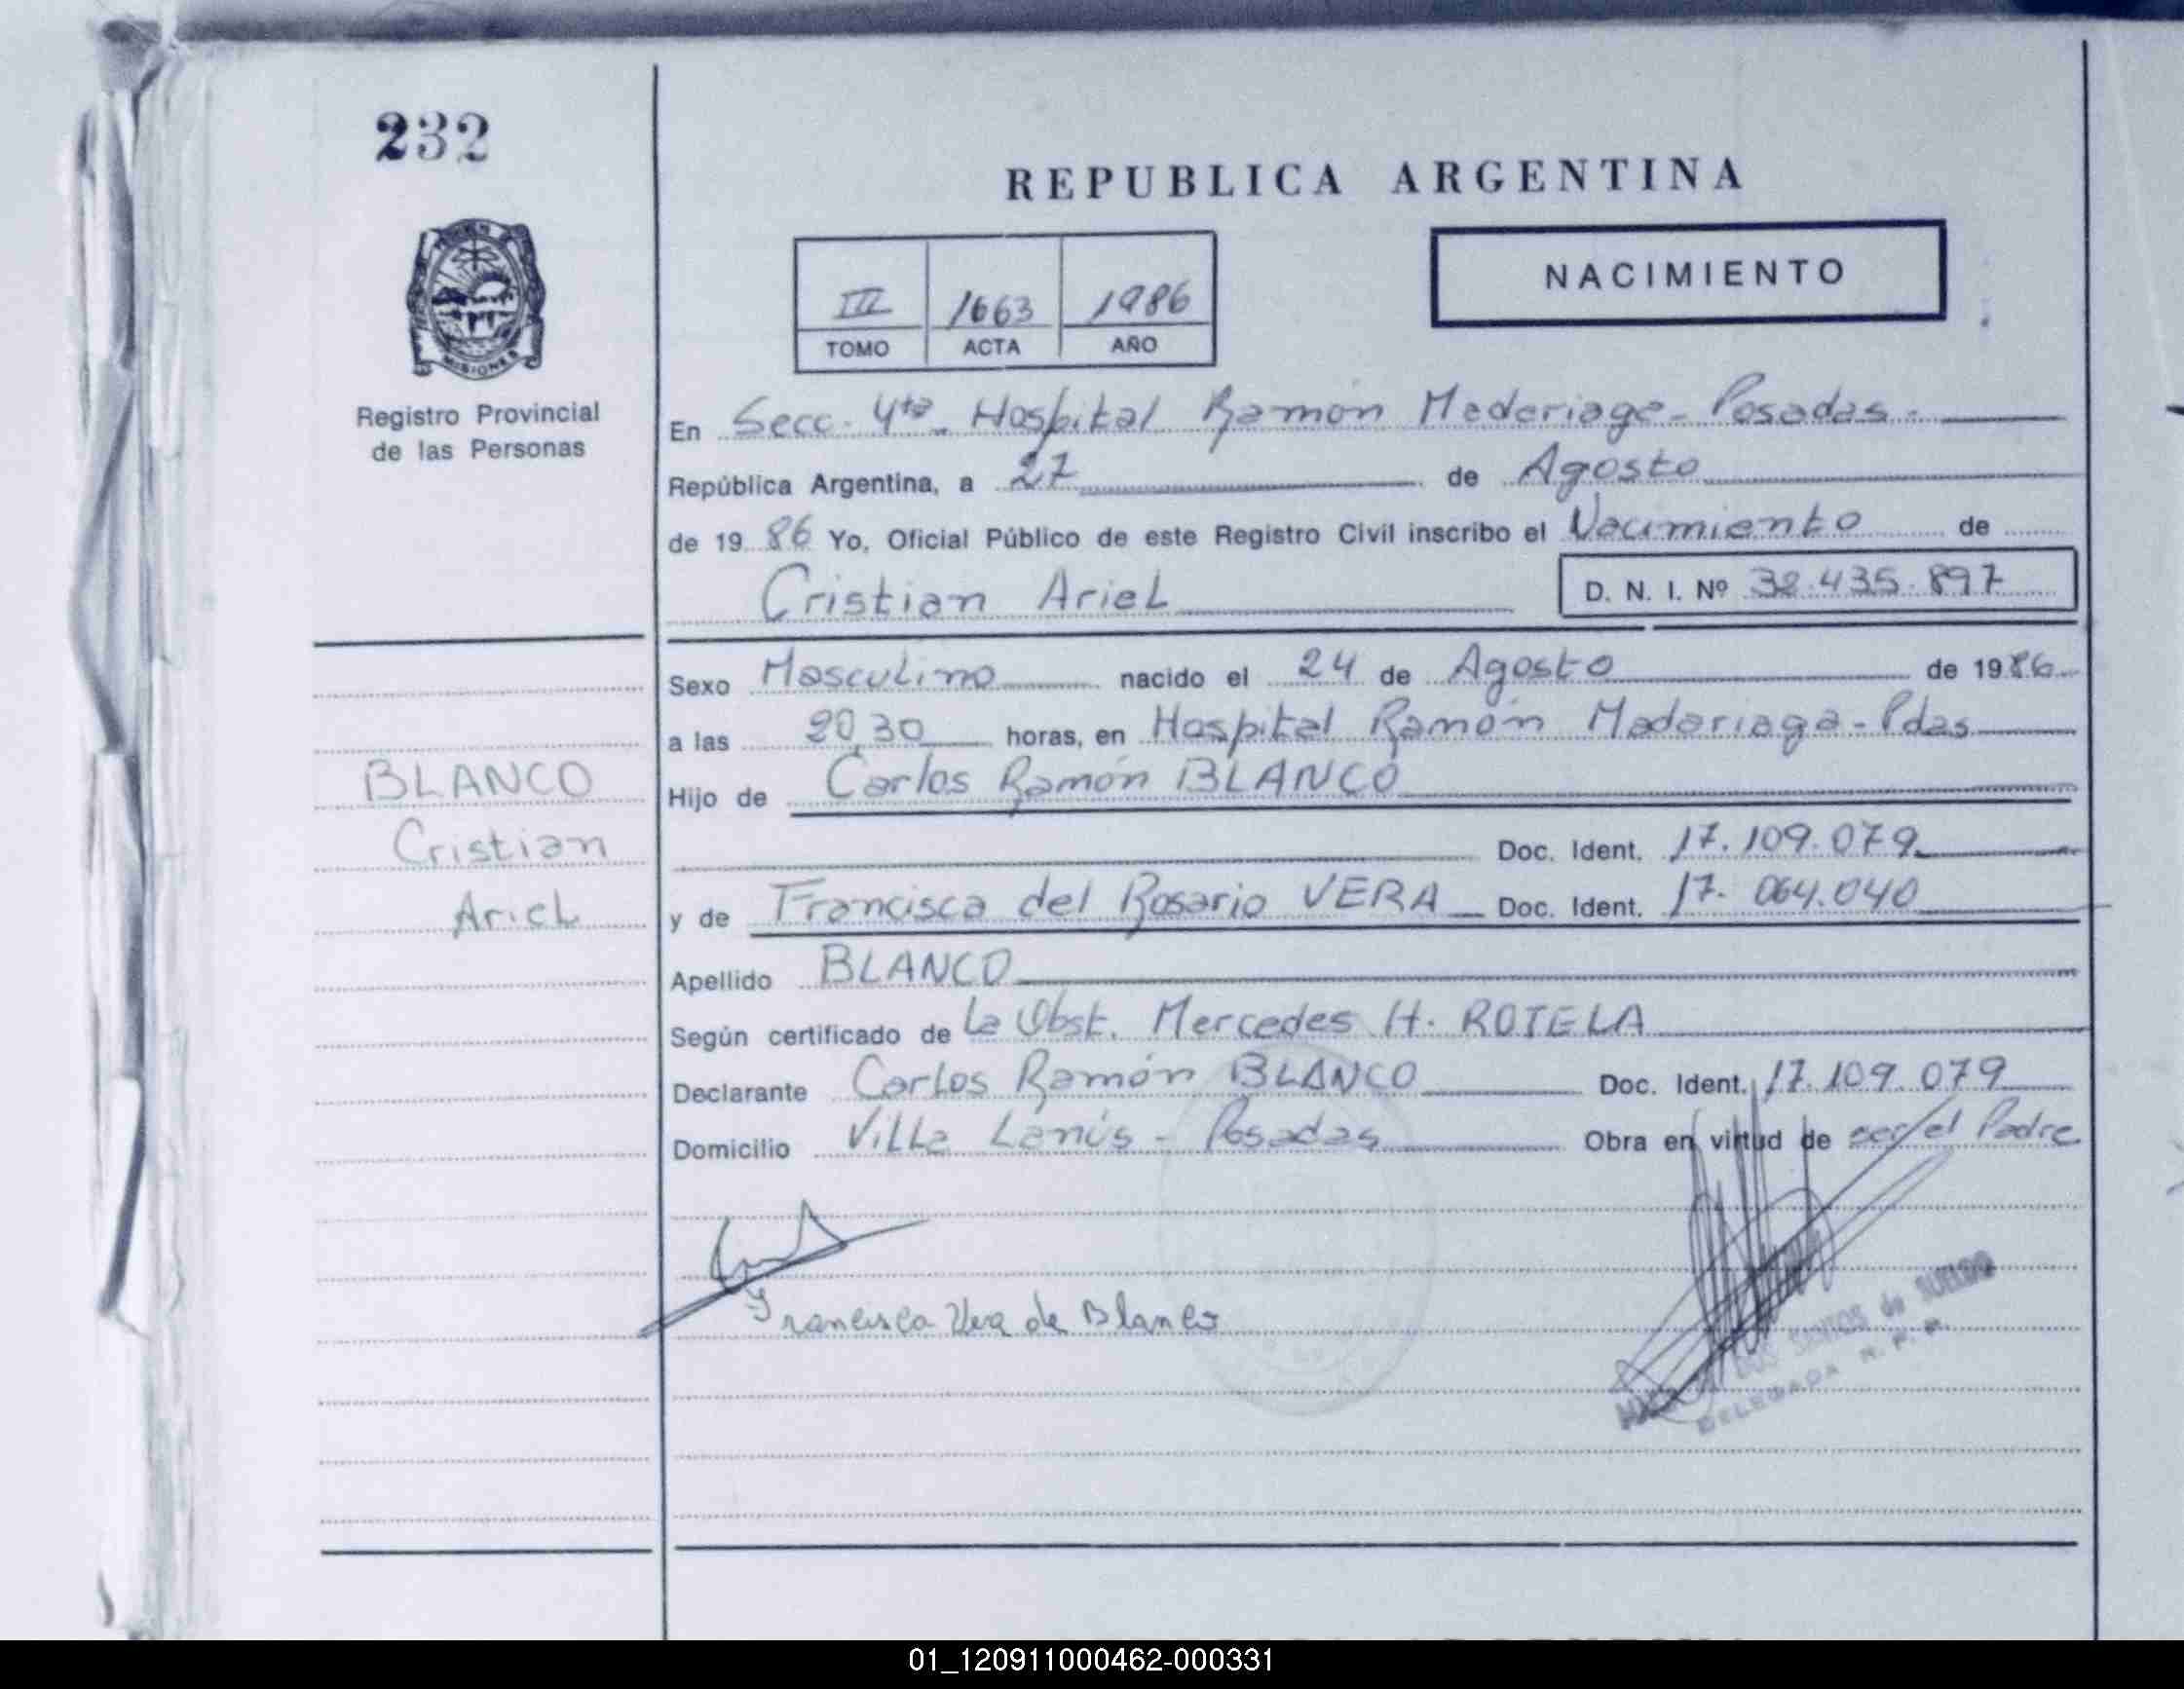 232
REPUBLICA ARGENTINA
NACIMIENTO
III 1663 1986
TOMO ACTA AÑO
MISIONES
Registro Provincial
de las Personas
En Secc. 4ta. Hospital Ramón Madariaga - Posadas -
República Argentina, a 27 de Agosto
de 1986 Yo, Oficial Público de este Registro Civil inscribo el Nacimiento de
Cristian Ariel D. N. I. Nº 32.435.897
Sexo Masculino nacido el 24 de Agosto de 1986
a las 20,30 horas, en Hospital Ramón Madariaga - Pdas
Hijo de Carlos Ramón BLANCO
Doc. Ident. 17.109.079
y de Francisca del Rosario VERA Doc. Ident. 17.064.040
Apellido BLANCO
Según certificado de La Obst. Mercedes H. ROTELA
Declarante Carlos Ramón BLANCO Doc. Ident. 17.109.079
Domicilio Villa Lanús - Posadas Obra en virtud de ser el Padre
BLANCO
Cristian
Ariel
Francisca Vera de Blanco
DOS SANTOS de SUELDO
DELEGADA R. P. P.
01_120911000462-000331